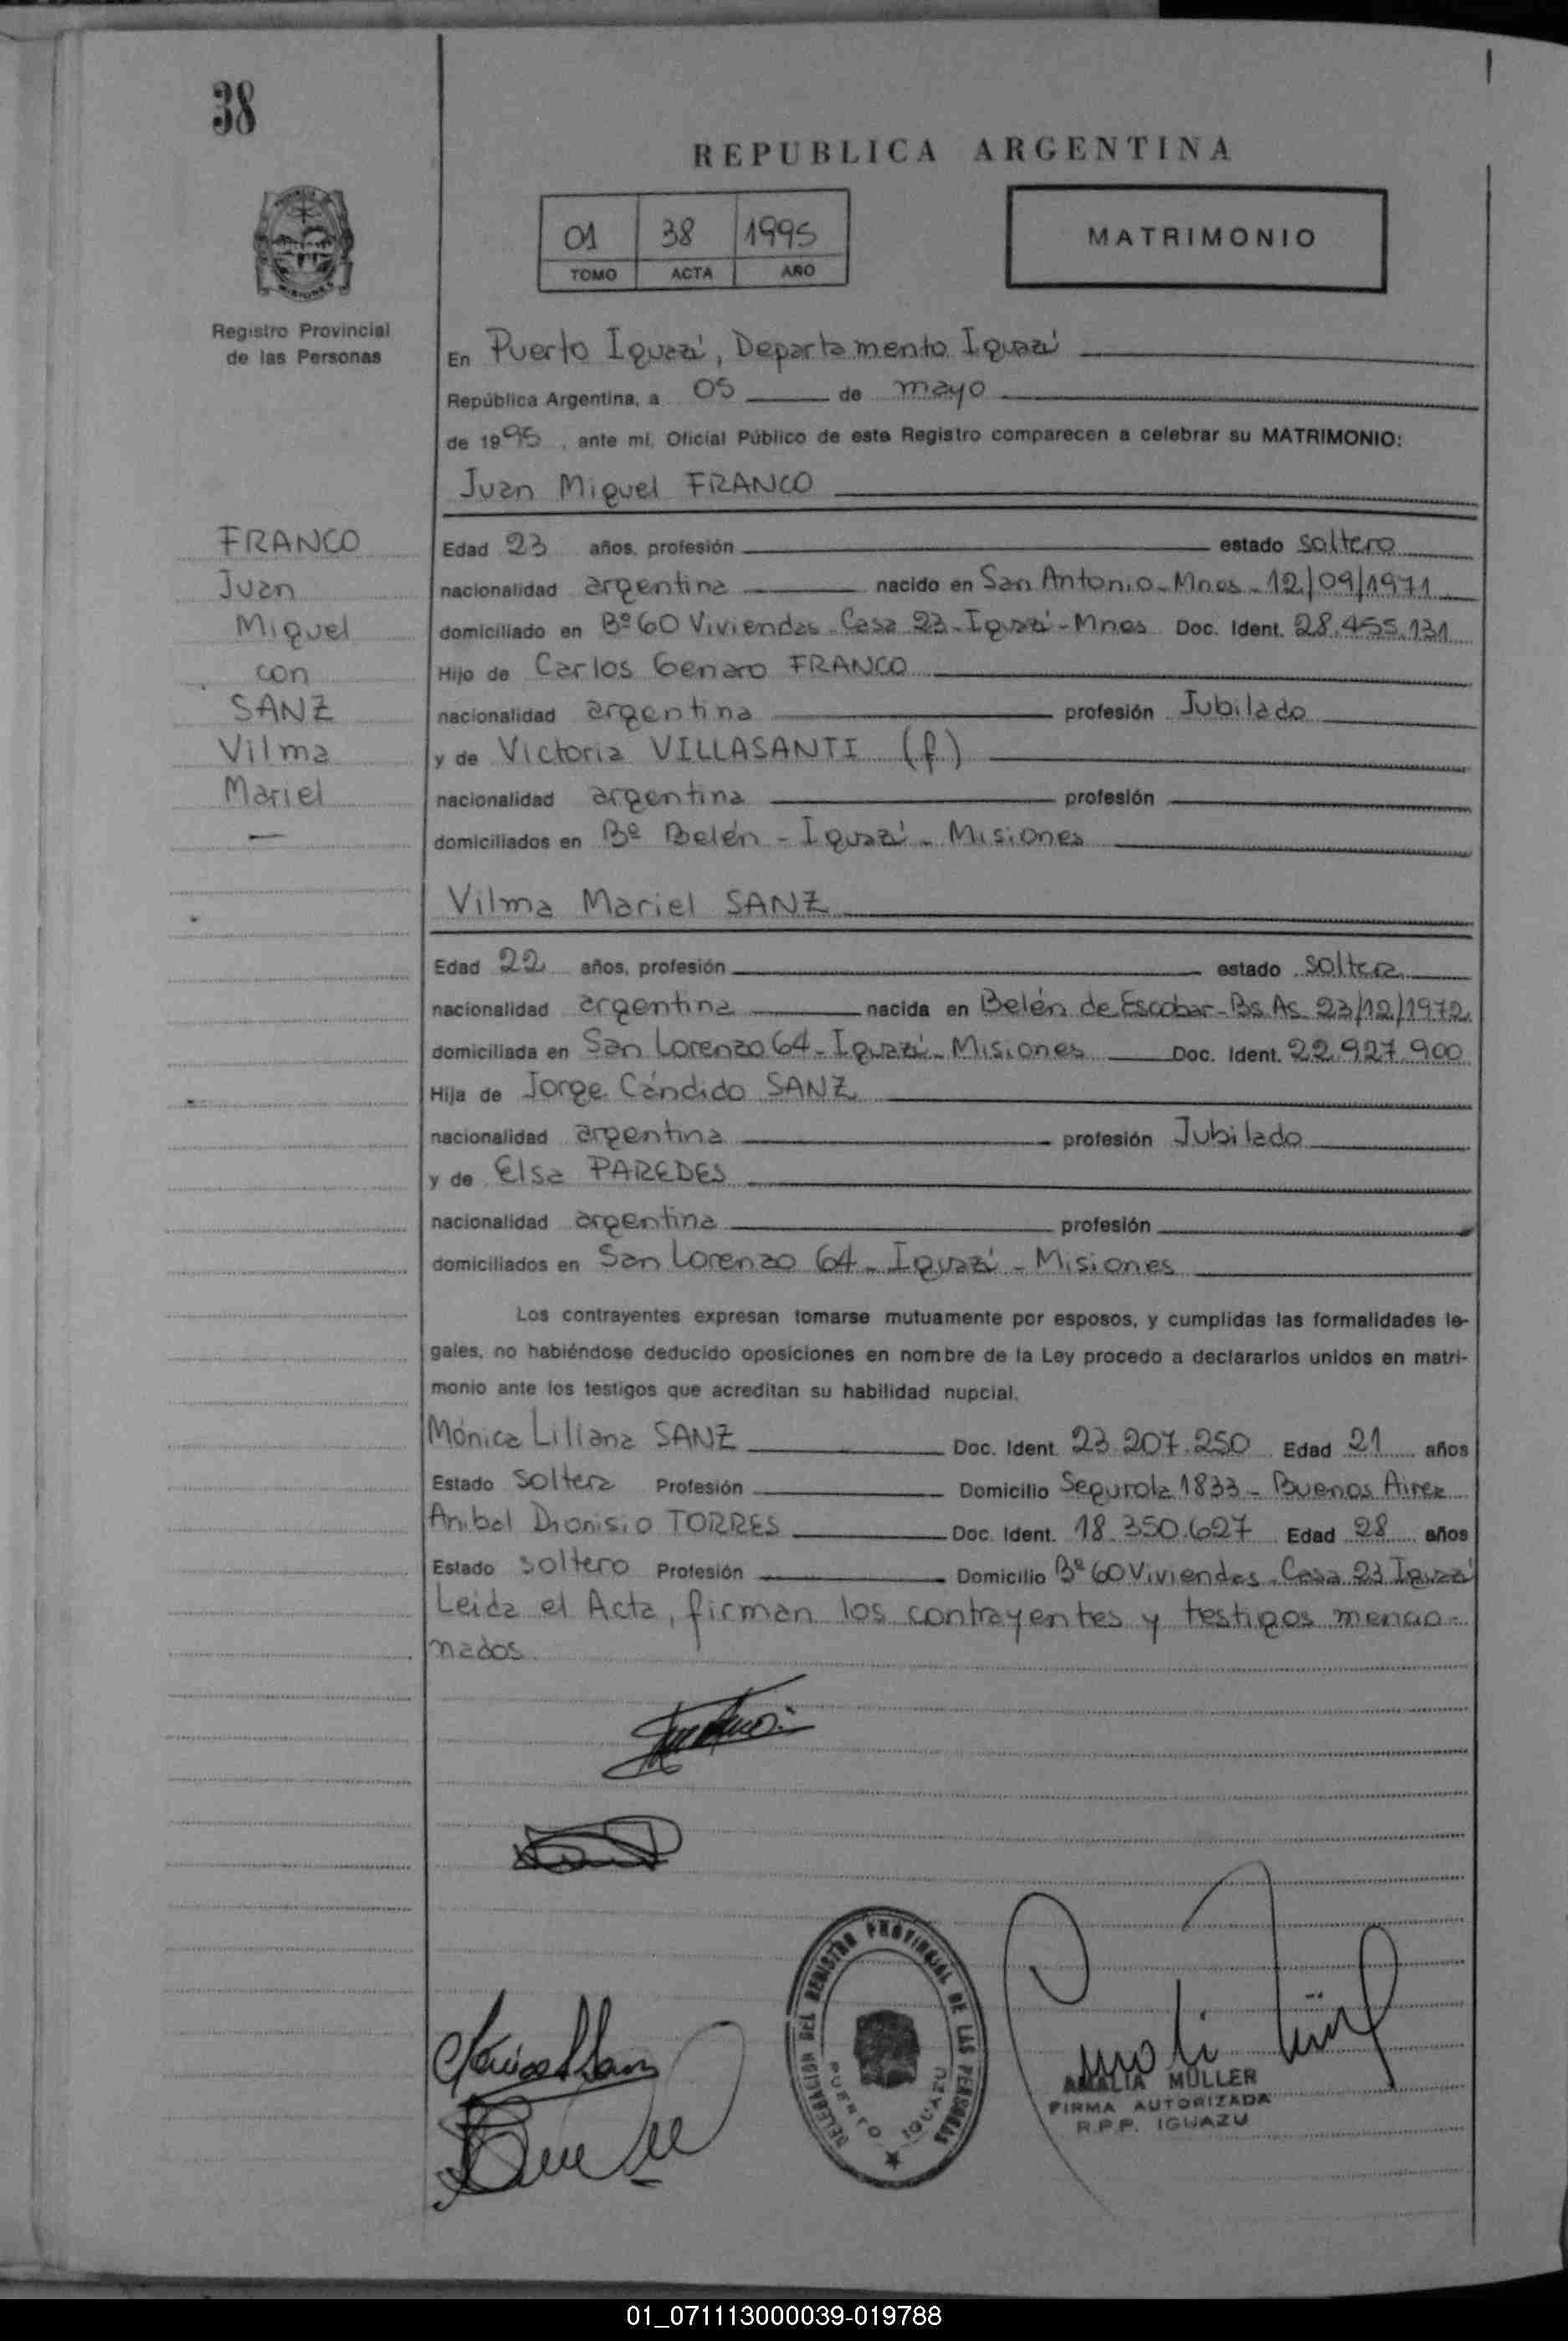 38
REPUBLICA ARGENTINA
01 38 1995
TOMO ACTA AÑO
MATRIMONIO
Registro Provincial
de las Personas
En Puerto Iguazú, Departamento Iguazú
República Argentina, a 05 de mayo
de 1995, ante mí, Oficial Público de este Registro comparecen a celebrar su MATRIMONIO:
Juan Miguel FRANCO
FRANCO
Juan
Miguel
con
SANZ
Vilma
Mariel
Edad 23 años, profesión estado soltero
nacionalidad argentina nacido en San Antonio-Mnes-12/09/1971
domiciliado en Bº 60 Viviendas-Casa 23-Iguazú-Mnes Doc. Ident. 28.455.131
Hijo de Carlos Genaro FRANCO
nacionalidad argentina profesión Jubilado
y de Victoria VILLASANTI (f)
nacionalidad argentina profesión
domiciliados en Bº Belén - Iguazú - Misiones
Vilma Mariel SANZ
Edad 22 años, profesión estado soltera
nacionalidad argentina nacida en Belén de Escobar-Bs As 23/12/1972
domiciliada en San Lorenzo 64-Iguazú-Misiones Doc. Ident. 22.927.900
Hija de Jorge Cándido SANZ
nacionalidad argentina profesión Jubilado
y de Elsa PAREDES
nacionalidad argentina profesión
domiciliados en San Lorenzo 64-Iguazú-Misiones
Los contrayentes expresan tomarse mutuamente por esposos, y cumplidas las formalidades le-
gales, no habiéndose deducido oposiciones en nombre de la Ley procedo a declararlos unidos en matri-
monio ante los testigos que acreditan su habilidad nupcial.
Mónica Liliana SANZ Doc. Ident. 23.207.250 Edad 21 años
Estado soltera Profesión Domicilio Segurola 1833-Buenos Aires
Anibal Dionisio TORRES Doc. Ident. 18.350.627 Edad 28 años
Estado soltero Profesión Domicilio Bº 60 Viviendas-Casa 23 Iguazú
Leida el Acta, firman los contrayentes y testigos mencio-
nados.
DELEGACION DEL REGISTRO PROVINCIAL DE LAS PERSONAS
PUERTO IGUAZU
AMALIA MÜLLER
FIRMA AUTORIZADA
R.P.P. IGUAZU
01_071113000039-019788